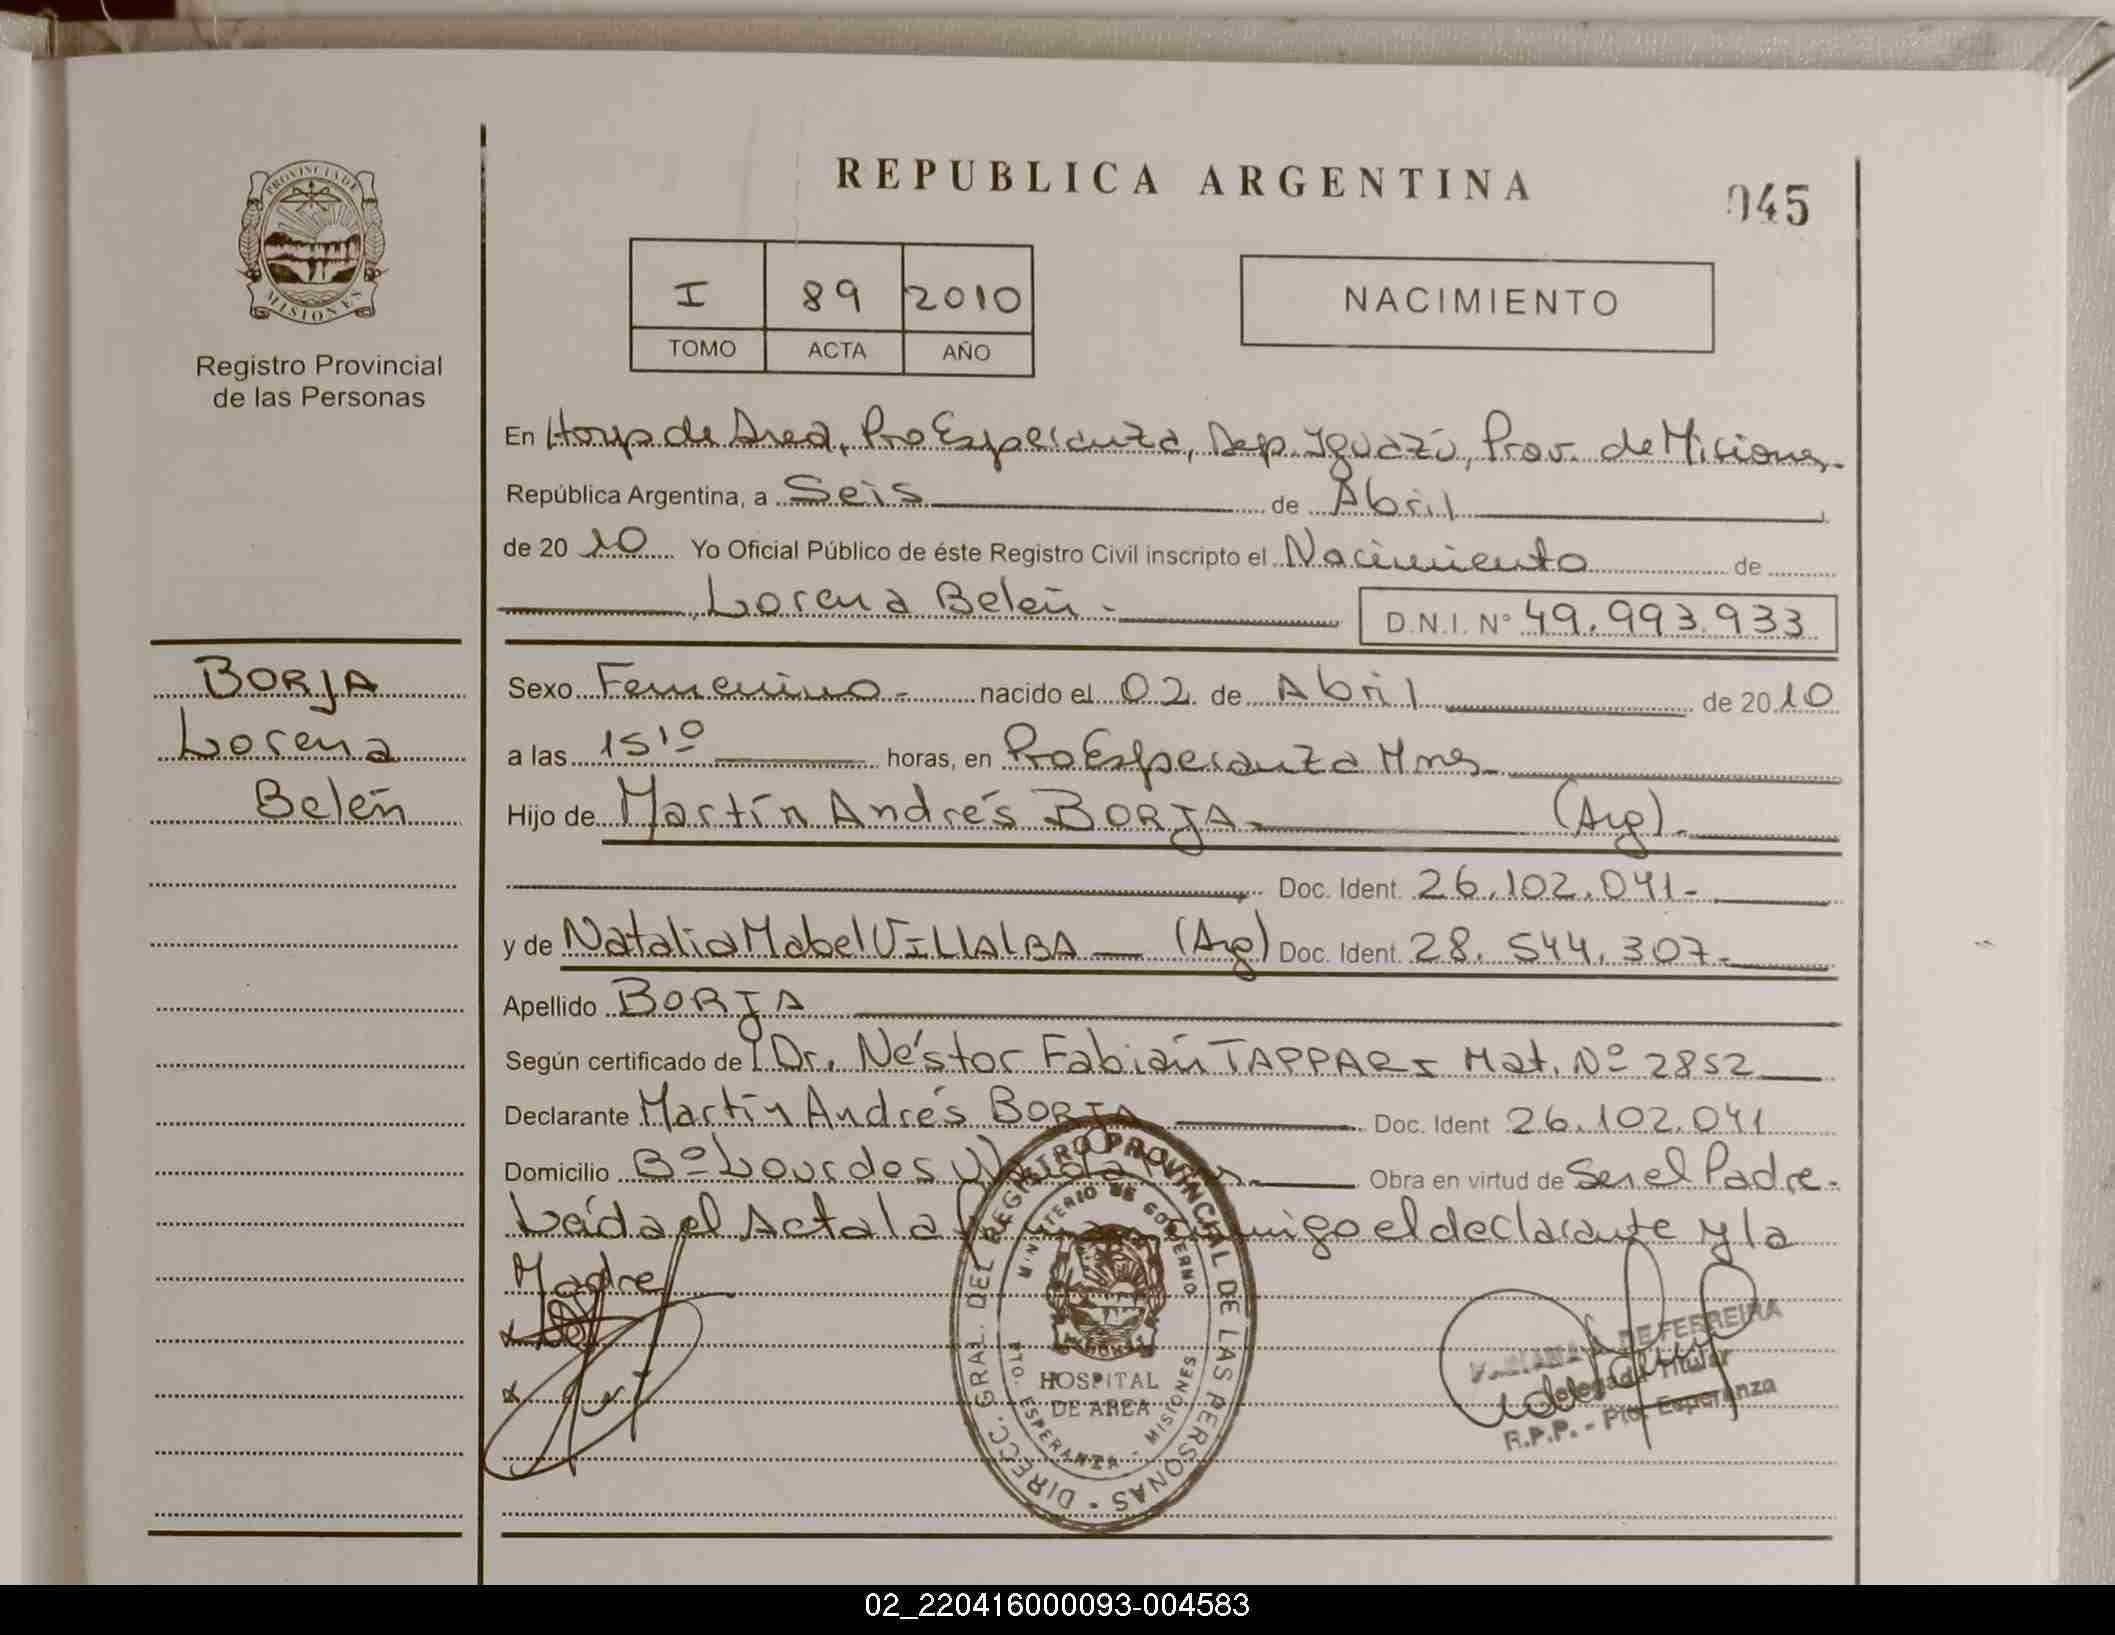 REPUBLICA ARGENTINA
045
PROVINCIA DE MISIONES
Registro Provincial
de las Personas
I 89 2010
TOMO ACTA AÑO
NACIMIENTO
En Hosp de Area, Pto Esperanza, Dep. Iguazú, Prov. de Misiones.
República Argentina, a Seis de Abril
de 2010 Yo Oficial Público de éste Registro Civil inscripto el Nacimiento de
Lorena Belén.
D.N.I. N° 49.993.933
BORJA
Lorena
Belén
Sexo Femenino.- nacido el 02 de Abril de 2010
a las 15¹⁰ horas, en Pto Esperanza Mnes
Hijo de Martín Andrés BORJA (Arg).
Doc. Ident. 26.102.041-
y de Natalia Mabel VILLALBA (Arg) Doc. Ident. 28.544.307-
Apellido BORJA
Según certificado de Dr. Néstor Fabián TAPPARI Mat. Nº 2852
Declarante Martín Andrés BORJA Doc. Ident 26.102.041
Domicilio Bº Lourdes Obra en virtud de Ser el Padre.
Leída el Acta la el declarante y la
Madre
DIRECC. GRAL. DEL REGISTRO PROVINCIAL DE LAS PERSONAS
MINISTERIO DE GOBIERNO
HOSPITAL
DE AREA
PTO. ESPERANZA - MISIONES
DE FERREIRA
delegada titular
R.P.P. - Pto. Esperanza
02_220416000093-004583